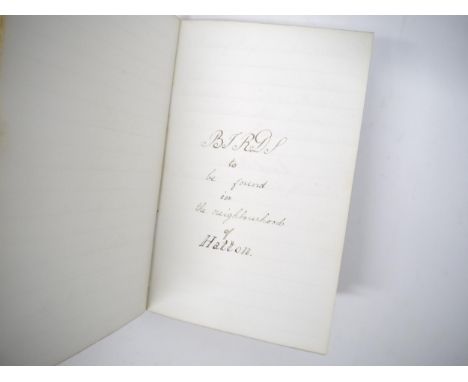 BIRDS
to
be found
in
the neighbourhood
of
Halton.